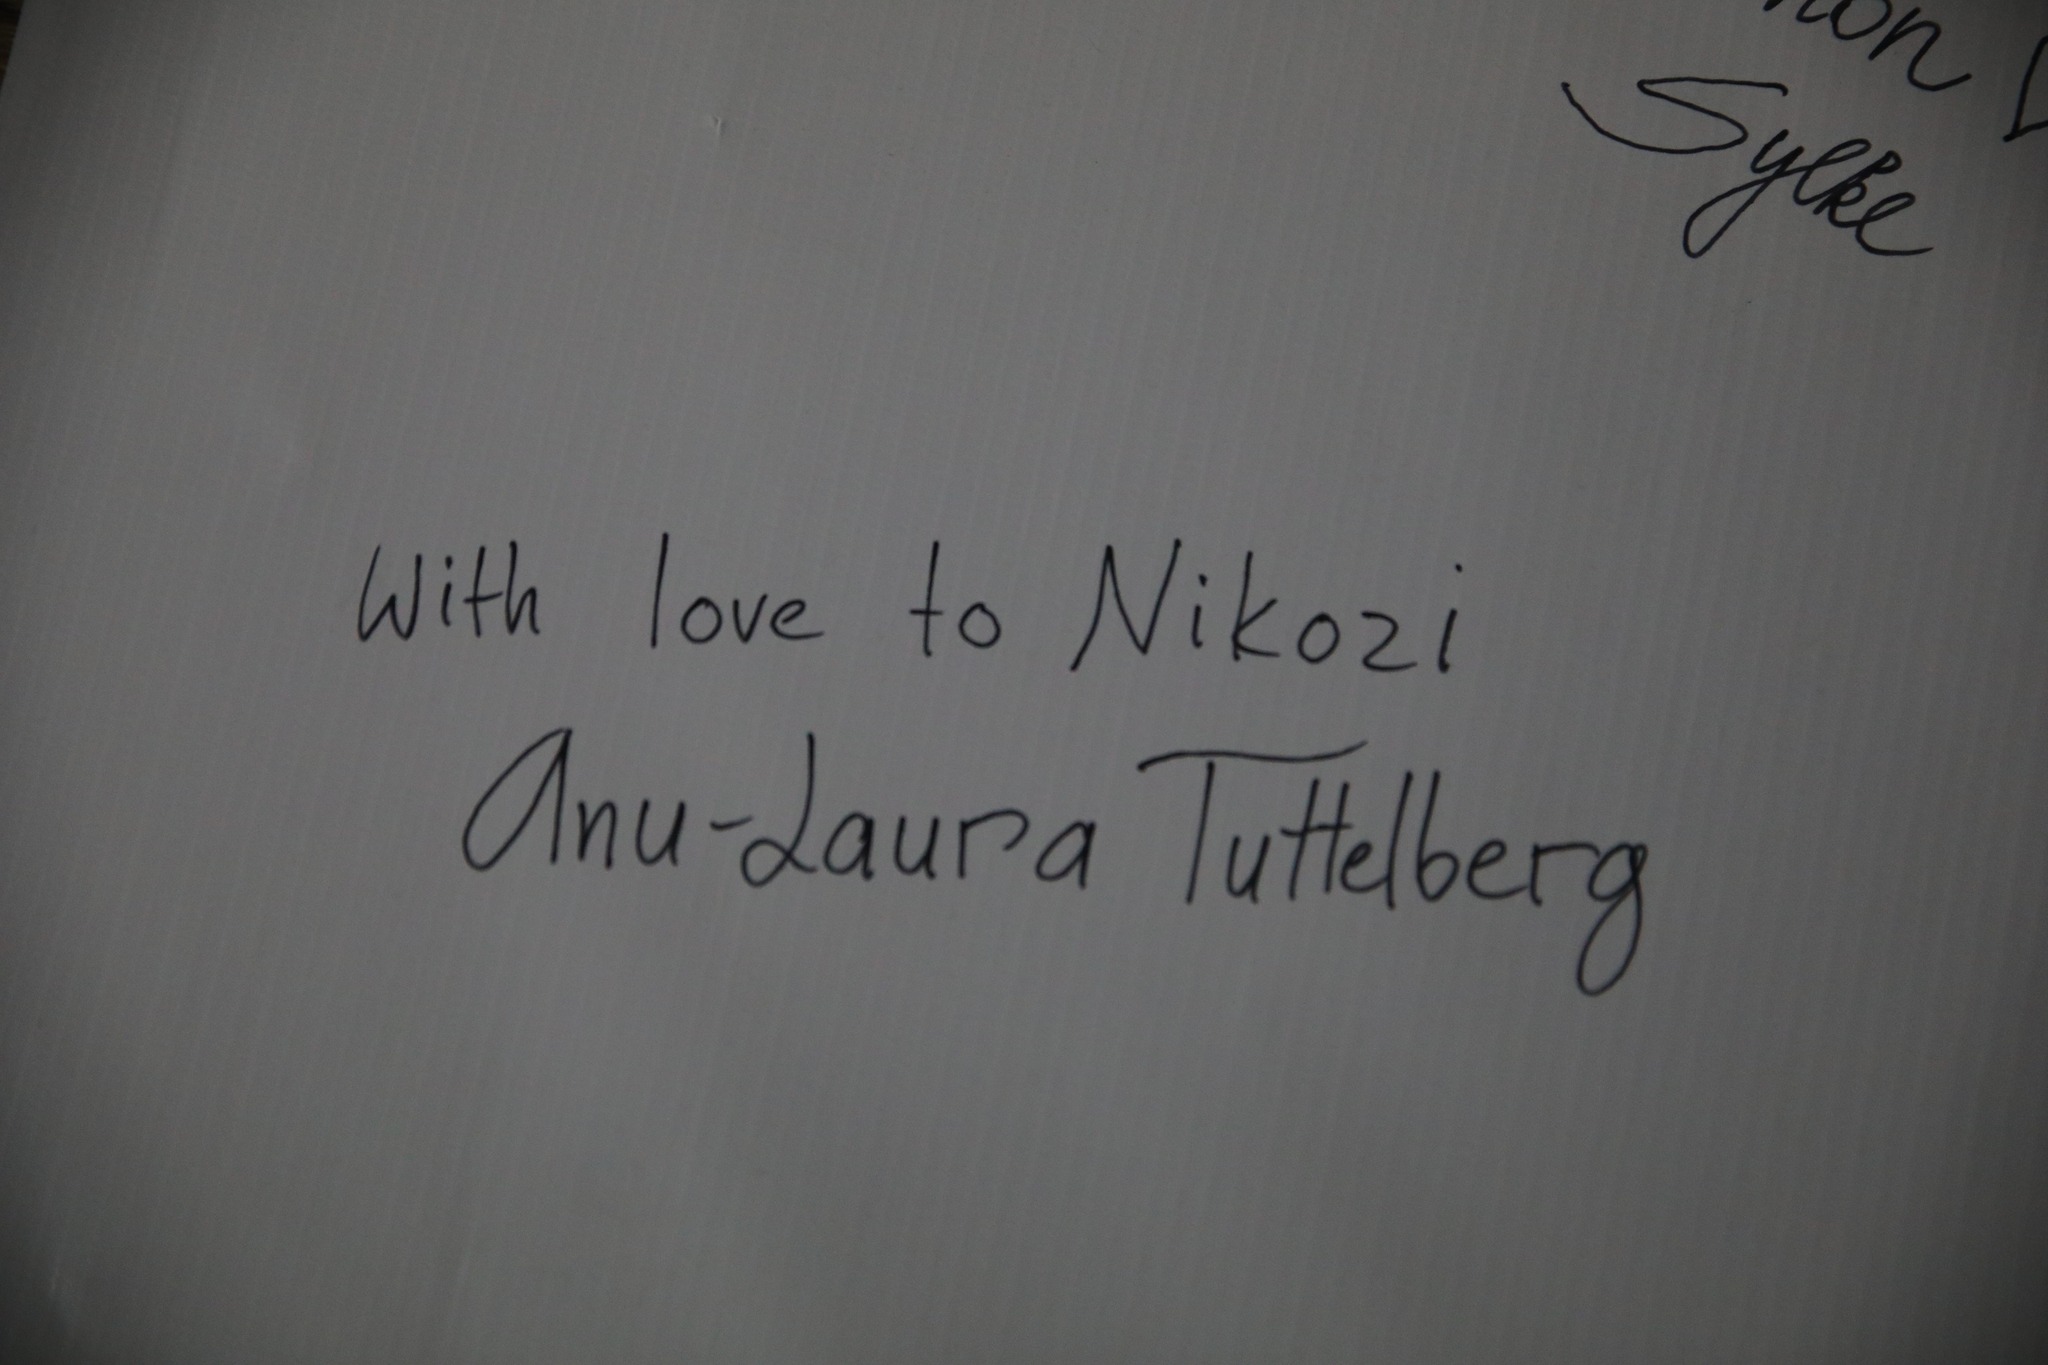 Sylke
With love to Nikozi
Anu-Laura Tuttelberg